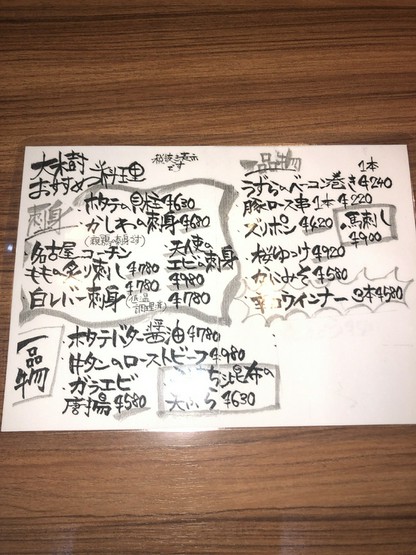 大樹
お好めつ料理
税抜き表示
です
刺身
・ホタテの貝焼 ¥630
・かしわの刺身 ¥680
(鶏の刺身です)
・名古屋コーチン
ももの炙り刺し ¥780
・天使の
エビの刺身
¥980
・白レバー刺身 ¥780
(低温
調理済)
¥780
一品物
・ホタテバター醤油 ¥780
・牛タンのローストビーフ ¥980
・ガラエビ
唐揚 ¥580
昆布の
天ぷら ¥630
一品物
1本
・うずらのベーコン巻き ¥240
・豚ロース串 1本 ¥220
・ズリポン ¥620
・馬刺し
¥900
・桜ゆっけ ¥920
・かにみそ ¥580
・辛口ウインナー 3本 ¥580